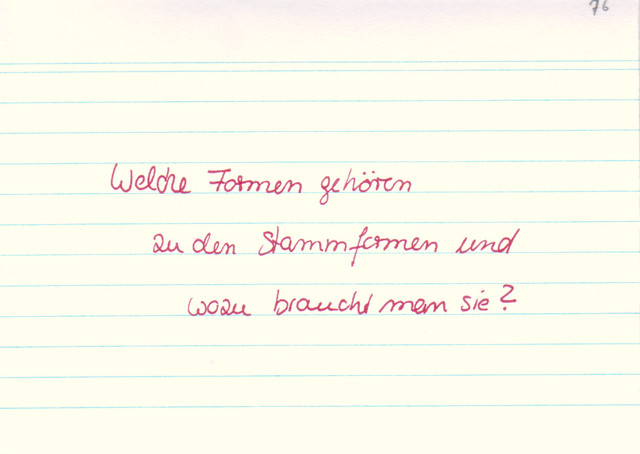 76
Welche Formen gehören
zu den Stammformen und
wozu braucht man sie?